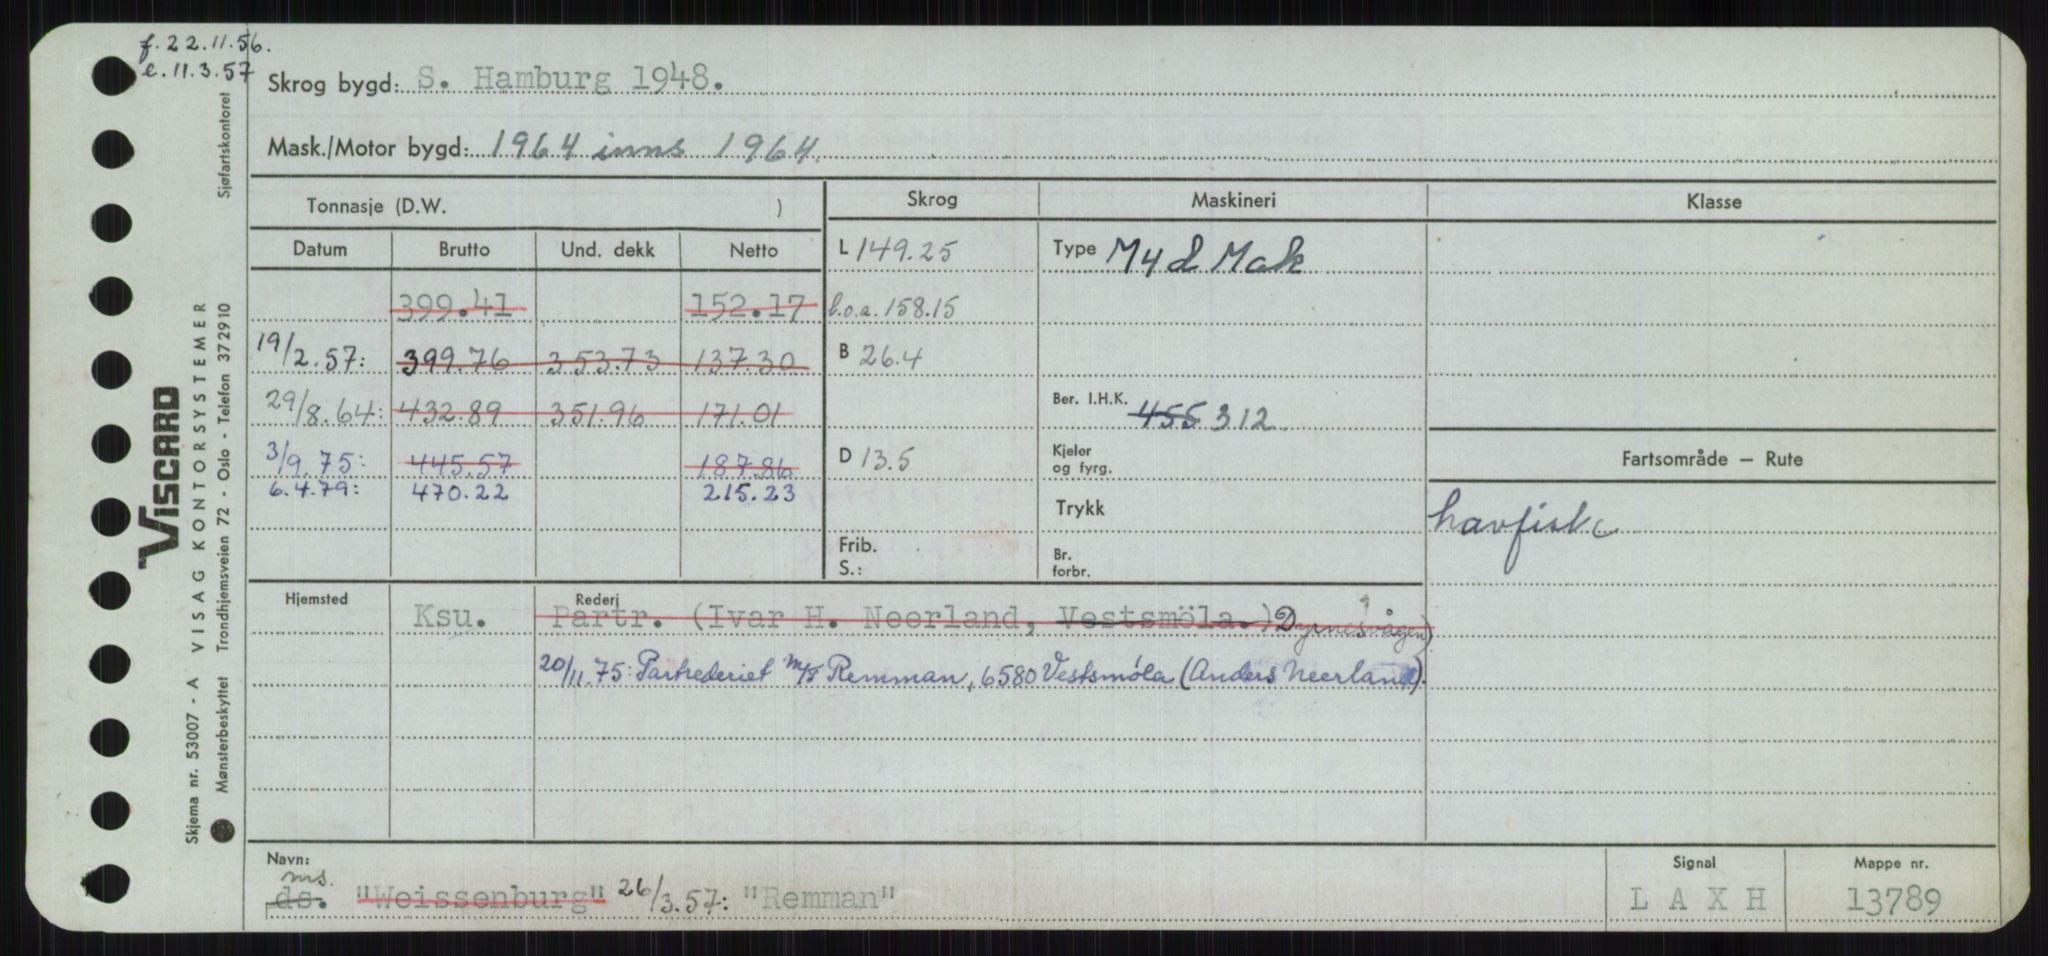 f. 22.11.56.
e. 11.3.57
Skrog bygd: S. Hamburg 1948.
Mask./Motor bygd: 1964 inns 1964.
Tonnasje (D.W. )
Skrog
Maskineri
Klasse
Datum Brutto Und. dekk Netto
L 149.25
Type M4d Mak
399.41 152.17
l.o.a. 158.15
19/2.57: 399.76 353.73 137.30
B 26.4
29/8.64: 432.89 351.96 171.01
Ber. I.H.K. 455 312
3/9.75: 445.57 187.86
D 13.5
Kjeler
og fyrg.
Fartsområde — Rute
6.4.79: 470.22 215.23
Trykk
havfiske
Frib.
S.:
Br.
forbr.
Hjemsted
Rederi
Ksu. Partr. (Ivar H. Neerland, Vestsmöla.) Dyrnesvågen)
20/11.75: Partrederiet m/s Remman, 6580 Vestsmøla (Anders Neerland).
Navn:
ms.
ds. "Weissenburg" 26/3.57: "Remman"
Signal
L A X H
Mappe nr.
13789
Sjøfartskontoret
VISCARD
VISAG KONTORSYSTEMER
Skjema nr. 53007 - A
Mønsterbeskyttet Trondhjemsveien 72 - Oslo - Telefon 372910